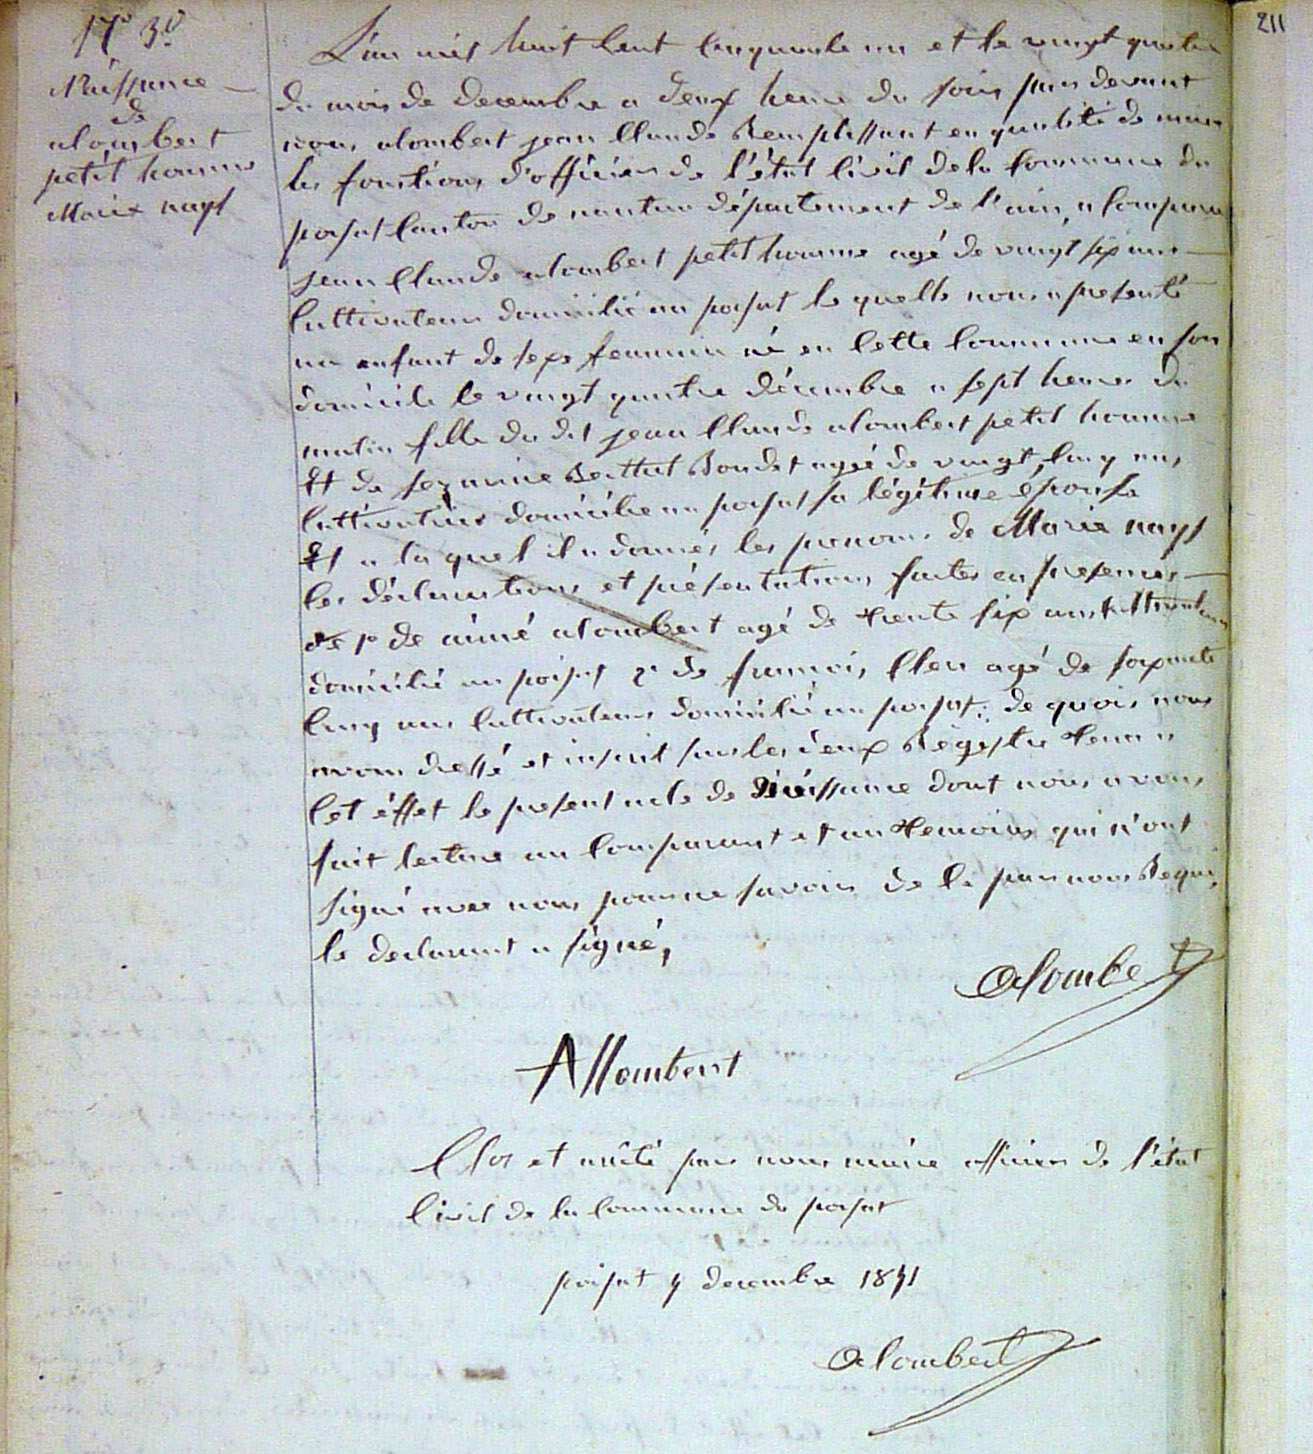 211
Naissance
de
alombert
petit homme
Marie
L'an mil huit cent cinquante un et le vingt quatre
du mois de decembre a deux heure du soir par devant
nous alombert jean Claude Remplissant en qualité de maire
les fonctions d'officier de l'état Civil de la Commune de
poisat Canton de nantua département de l'ain, a Comparu
jean Claude alombert petit homme agé de vingt six ans
Cultivateur domicilié au poisat le quelle nous a presenté
un enfant de sexe feminin né en Cette Commune en son
domicile le vingt quatre décembre a sept heures du
matin fille du dit jean Claude alombert petit homme
Et de agée de vingt Cinq ans,
Cultivatrice domicilié au poisat sa légitime épouse
Et a la quel il a donnés les prenoms de Marie
les déclarations et présentations faites en presence
de 1° de aimé alombert agé de trente six ans Cultivateur
domicilié au poisat 2° de françois agé de soixante
Cinq ans Cultivateur domicilié au poisat; de quois nous
avons dressé et inscrit sur les deux Régistre tenu a
Cet éffet le present acte de Naissance dont nous avons
fait lecture au Comparant et au temoins qui n'ont
signé avec nous pour ne savoir de le par nous Requi,
le declarant a signé,
Alombert
Allombert
Clos et arrêté par nous maire officier de l'état
Civil de la Commune de poisat
poisat decembre 1851
Alombert